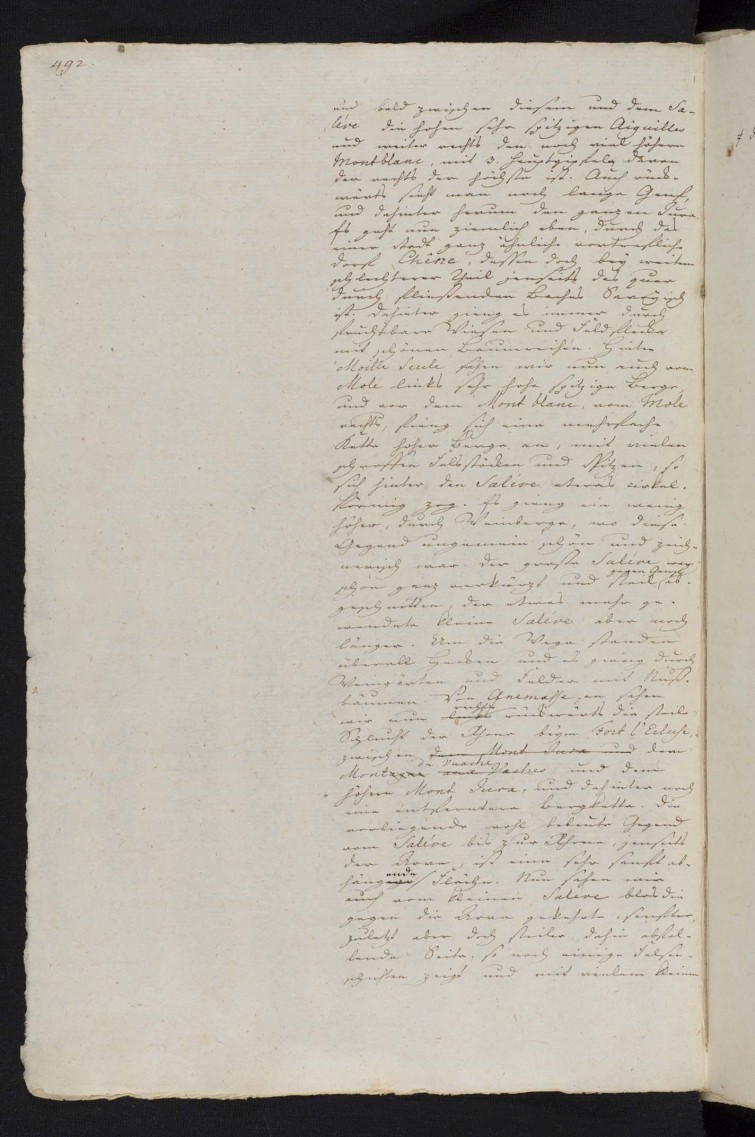 492.
und bald zwischen diesem und dem Sa-
léve die hohen sehr spitzigen Aiguilles
und weiter rechts den noch viel höhern
Montblanc, mit 3. Hauptgipfeln davon
der rechts der höchste ist. Auch rück-
wärts sieht man noch lange Genf,
und dahinter herum den ganzen Jura
Es geht nun ziemlich eben, durch das
einer Stadt ganz ähnliche vortrefliche
Dorf Chêne, dessen doch bey weitem
schlechterer Theil jenseits des quer
durch fliessenden Baches Savoyisch
ist. Dahinter gieng es immer durch
fruchtbare Wiesen und Feldstücke
mit schönen Baumreihen. Hinter
Moille Sulle sahen wir nun auch vom
Mole links sehr hohe spitzige Berge,
und vor dem Mont blanc, vom Mole
rechts, fieng sich eine mehrfache
Kette hoher Berge an, mit vielen
schroffen Felsstöcken und Spitzen, so
sich hinter den Saléve etwas cirkel-
förmig zog. Es gieng ein wenig
höher, durch Weinberge, wo diese
Gegend ungemein schön und zeich-
nerisch war. Der grosse Saléve war
schon ganz verkürzt und steil gegen Genf ab-
geschnitten, der etwas mehr ge-
wendete kleine Saléve aber noch
länger. Um die Wege standen
überall Hecken und es gieng durch
Weingärten und Felder mit Nuss-
bäumen. Von Anemasse an sahen
wir nun links rechts rückwärts die steile
Schlucht der Rhone beym Fort l'Ecluse,
zwischen dem Mont Jura und dem
Mont de Vuache und Vaches, und dem
höhern Mont Jura, und dahinter noch
eine entferntere Bergkette. Die
vorliegende wohl bebaute Gegend
vom Saléve bis zur Rhone, jenseits
der Arve, ist eine sehr sanft ab-
hängende Fläche. Nun sahen wir
auch vom kleinen Saléve blos die
gegen die Arve gekehrte, sanfter,
zuletzt aber doch steiler dahin abfal-
lende Seite, so noch einige Felsen-
schichten zeigt und mit vielem kleinen